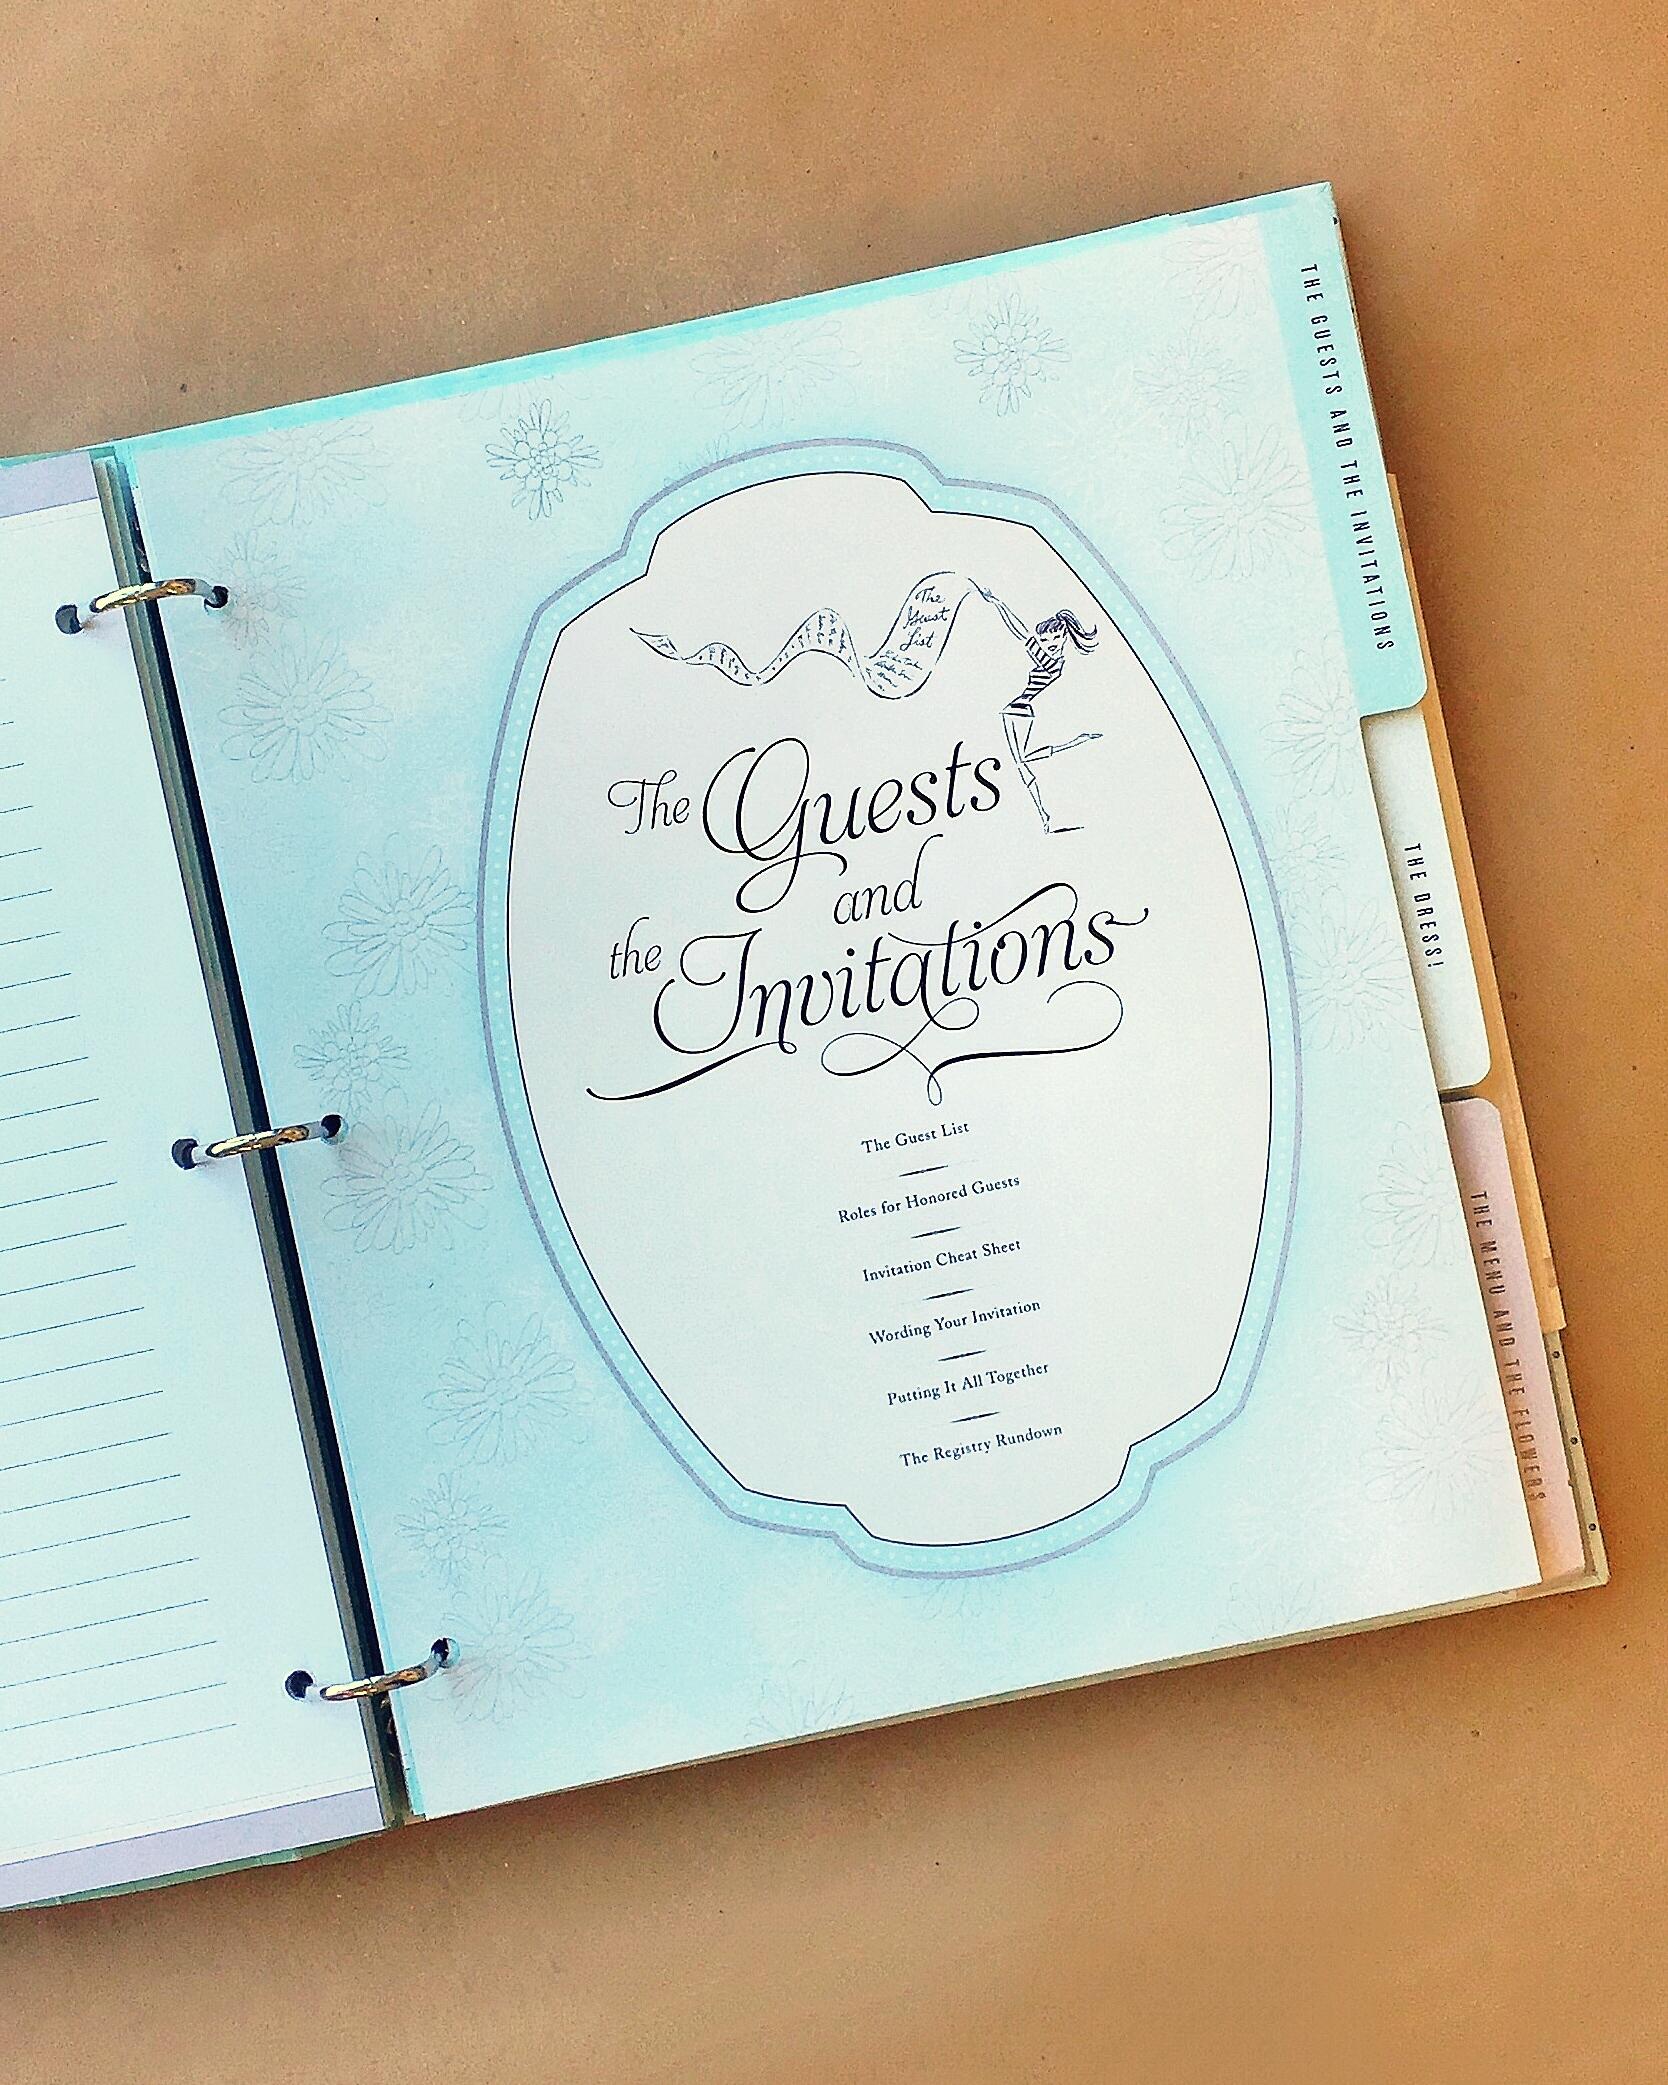 The
Guest
List
The Guests
and
the Invitations
The Guest List
Roles for Honored Guests
Invitation Cheat Sheet
Wording Your Invitation
Putting It All Together
The Registry Rundown
THE GUESTS AND THE INVITATIONS
THE DRESS!
THE MENU AND THE FLOWERS